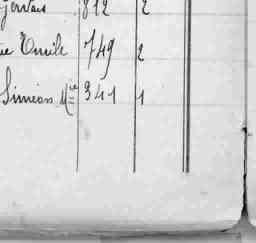 Gervais 812 2
ue Emile 749 2
Siméon Mᵉ 341 1